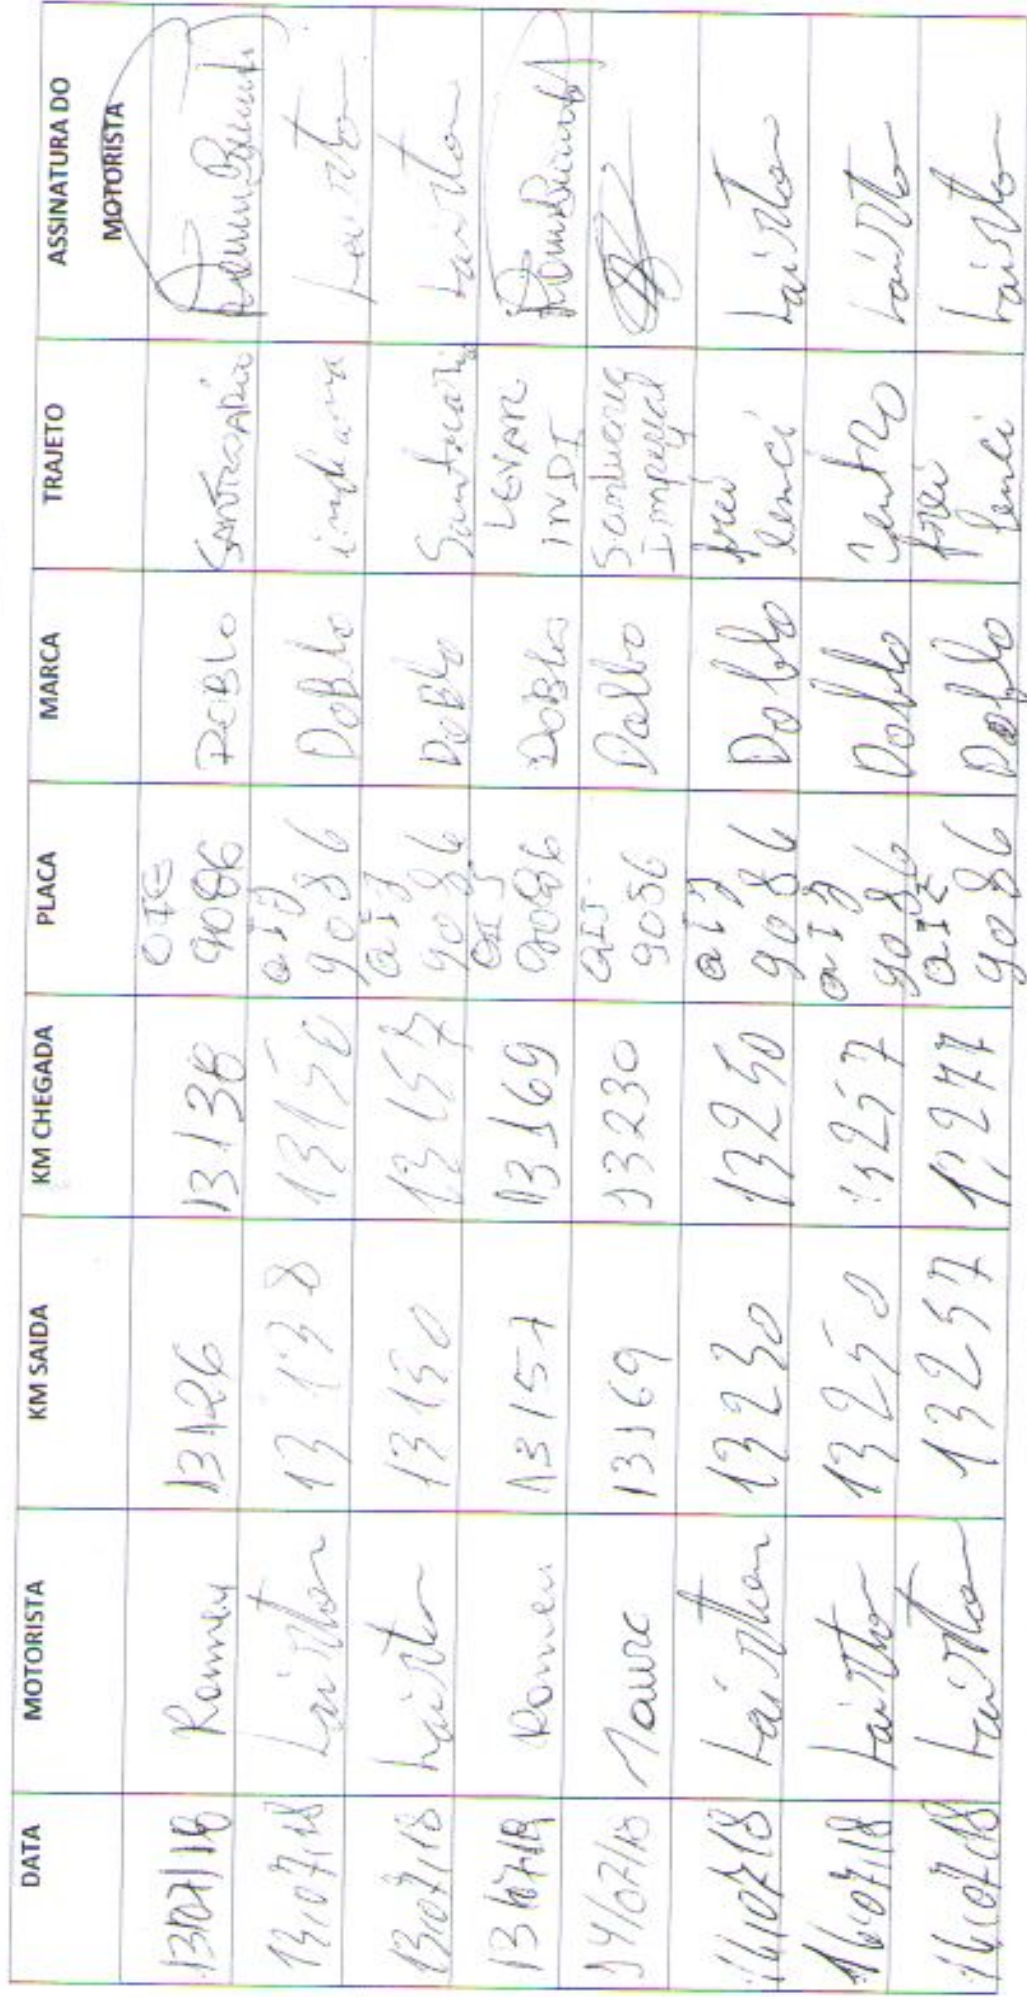 DATA MOTORISTA KM SAIDA KM CHEGADA PLACA MARCA TRAJETO ASSINATURA DO MOTORISTA
13/07/18 Romeu 13126 13138 9086 DOBLO
13/07/18 Lairton 13138 13150 OIJ 9086 DoBlo indiana Lairton
13/07/18 Lairton 13150 13157 OIJ 9086 DoBlo Lairton
13/07/18 Romeu 13157 13169 9086 DOBLO LEVAR INDI
14/07/18 13169 13230 9086 Dolbo Imperial
16/07/18 Lairton 13230 13250 OIJ 9086 Doblo frei lenci Lairton
16/07/18 Lairton 13250 13257 OIJ 9086 Doblo Centro Lairton
16/07/18 Lairton 13257 13277 9086 Doblo frei lenci Lairton